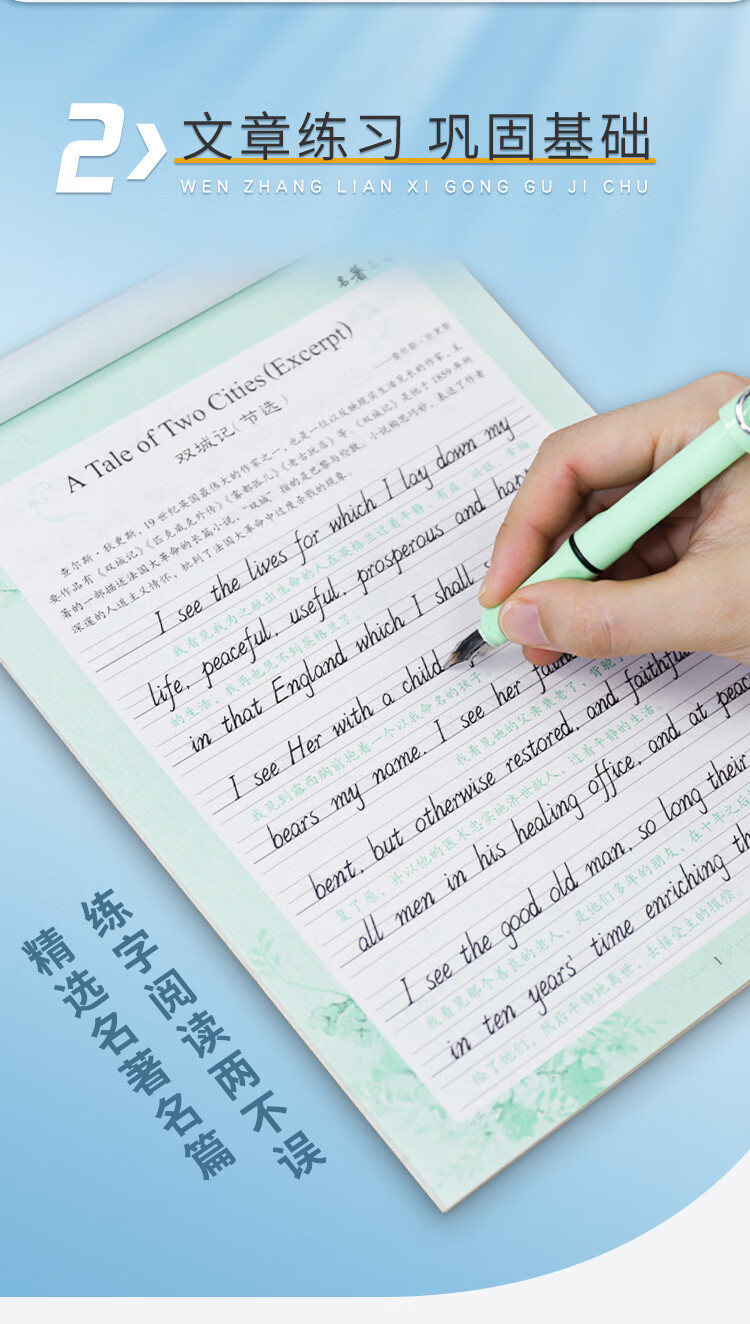 2
文章练习 巩固基础
WEN ZHANG LIAN XI GONG GU JI CHU
名著
A Tale of Two Cities (Excerpt)
双城记(节选)
查尔斯·狄更斯
查尔斯·狄更斯,19世纪英国最伟大的作家之一,也是一位以反映现实生活见长的作家,主
要作品有《双城记》《匹克威克外传》《雾都孤儿》《老古玩店》等。《双城记》是他于1859年所
著的一部描述法国大革命的长篇小说,“双城”指的是巴黎与伦敦。小说构思巧妙,表达了作者
深邃的人道主义情怀,批判了法国大革命中过度杀戮的现象。
I see the lives for which I lay down my
我看见我为之献出生命的人在英格兰过着平静、有益、兴旺、幸福
life, peaceful, useful, prosperous and
的生活,我再也见不到英格兰了。
in that England which I shall
I see Her with a child
我见到露西胸前抱着一个以我命名的孩子
bears my name. I see her
我看见她的父亲衰老了,背驼了
bent, but otherwise restored, and faithful
复了原,并以他的医术忠实地济世救人,过着平静的生活。
all men in his healing office, and at peace
I see the good old man, so long their
我看见那个善良的老人,是他们多年的朋友,在十年之后
in ten years' time enriching
给了他们,然后平静地离世,去接受主的报偿
1
练字阅读两不误
精选名著名篇